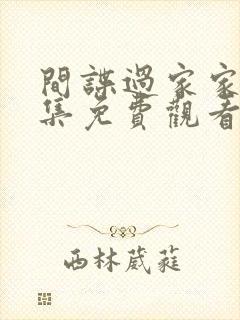 間諜過家家
集免費觀看
西林葳蕤